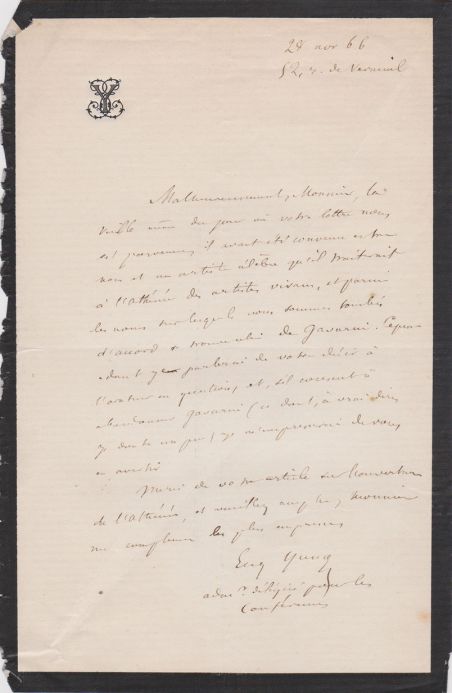 28 nov 66
52, r. de Verneuil
Malheureusement, Monsieur, la
veille même du jour où votre lettre nous
est parvenue, il avait été convenu entre
nous et un artiste célèbre qu'il traiterait
à l'athénée des artistes vivans, et parmi
les noms sur lesquels nous sommes tombés
d'accord se trouve celui de Gavarni. Cepen-
-dant je parlerai de votre désir à
l'orateur en question, et, s'il consent à
abandonner Gavarni (ce dont, à vrai dire,
je doute un peu) je m'empresserai de vous
en avertir
Merci de votre article sur l'ouverture
de l'Athénée, et veuillez agréer, Monsieur
mes compliments les plus empressés
Eug Yung
adm.r délégué pour les
Conférences